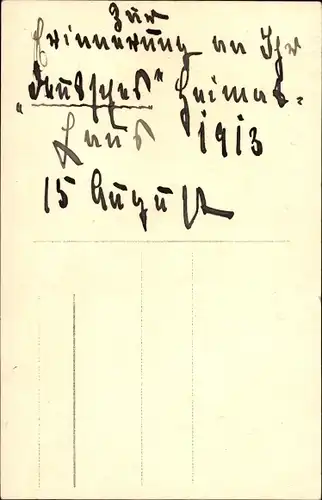 Zur
Erinnerung an Ihr
"Deutsches" Heimat-
Haus 1913
15 August